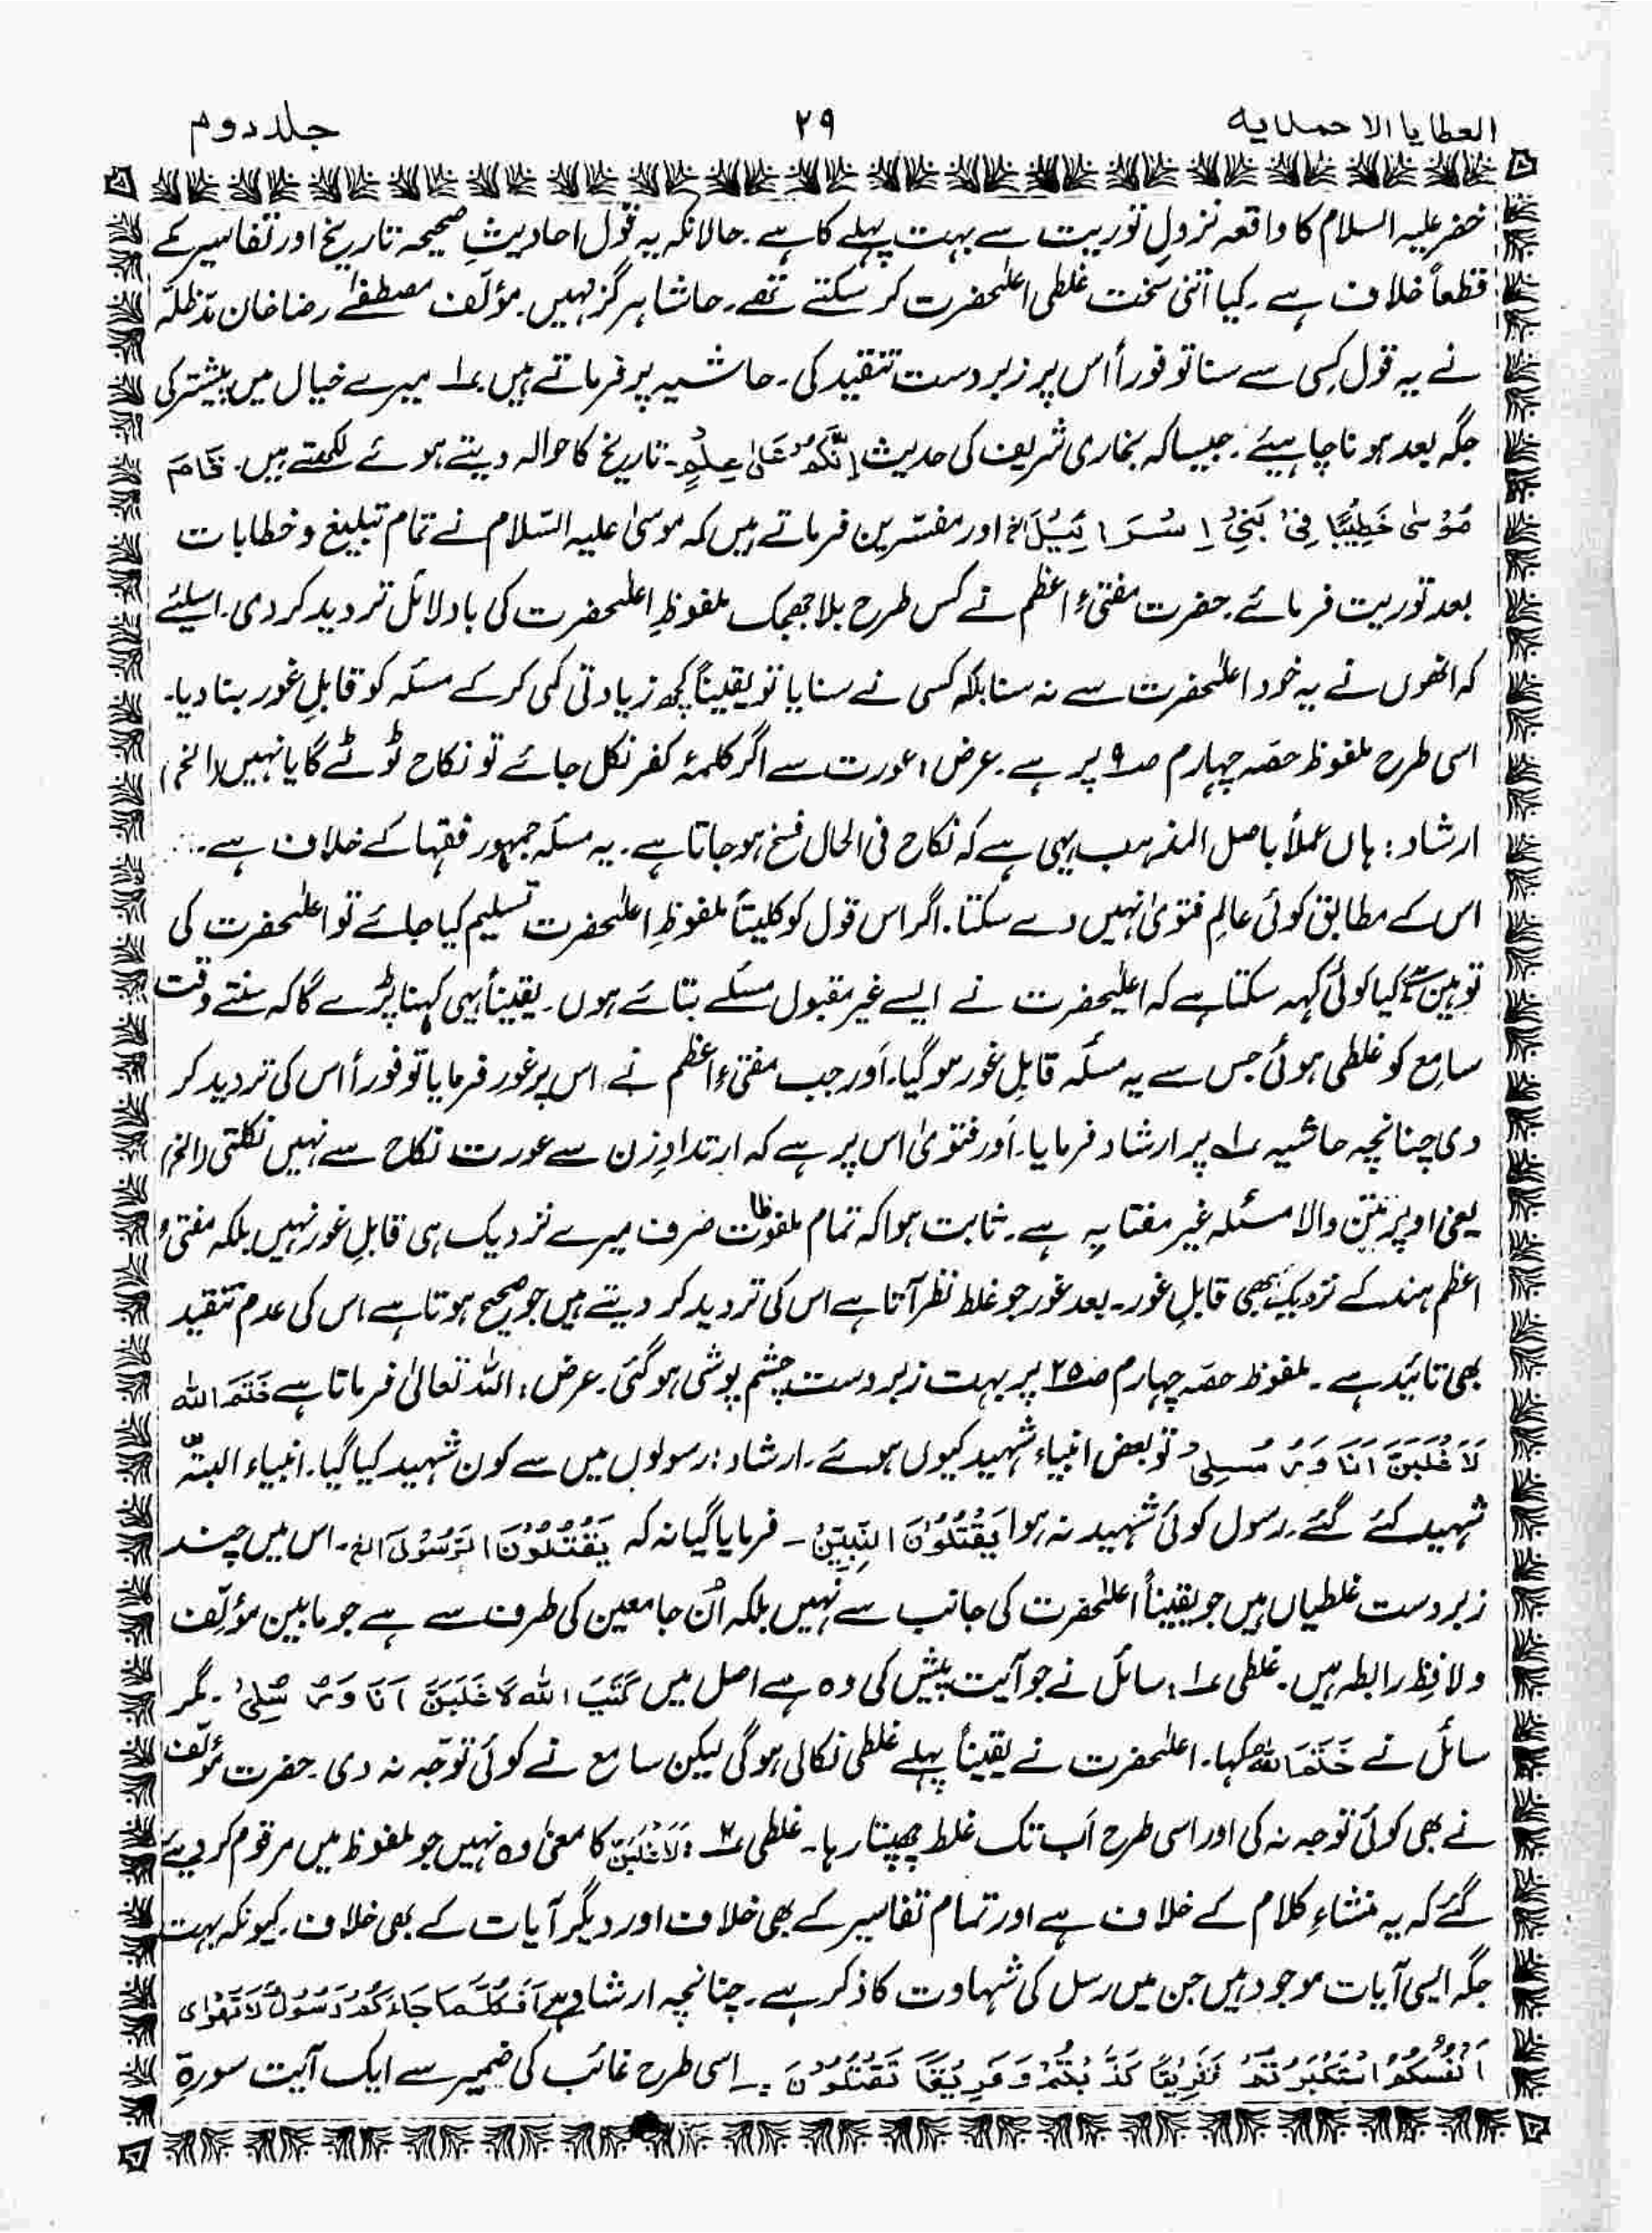 العطایا الاحمدیه ۲۹ جلد دوم
خضر علیہ السلام کا واقعہ نزولِ توریت سے بہت پہلے کا ہے۔ حالانکہ یہ قول احادیثِ صحیحہ تاریخ اور تفاسیر کے
قطعاً خلاف ہے۔ کیا اتنی سخت غلطی اعلٰحضرت کر سکتے تھے۔ حاشا ہرگز نہیں۔ مؤلف مصطفےٰ رضا خان مدظلہ
نے یہ قول کسی سے سنا تو فوراً اس پر زبردست تنقید کی۔ حاشیہ پر فرماتے ہیں ۱؎ میرے خیال میں پیشتر کی
جگہ بعد ہونا چاہیئے۔ جیسا کہ بخاری شریف کی حدیث اِنَّکَ عَلیٰ عِلْمٍ۔ تاریخ کا حوالہ دیتے ہوئے لکھتے ہیں۔ قَامَ
مُوْسٰی خَطِیْبًا فِیْ بَنِیْ اِسْرَائِیْلَ الخ اور مفسّرین فرماتے ہیں کہ موسیٰ علیہ السّلام نے تمام تبلیغ و خطابات
بعد توریت فرمائے۔ حضرت مفتیٔ اعظم نے کس طرح بلا جھجک ملفوظِ اعلٰحضرت کی بادلائل تردید کر دی۔ اسلیئے
کہ انھوں نے یہ خود اعلٰحضرت سے نہ سنا بلکہ کسی نے سنایا تو یقیناً کچھ زیادتی کمی کر کے مسئلہ کو قابلِ غور بنا دیا۔
اسی طرح ملفوظ حصّہ چہارم صـ۹ پر ہے۔ عرض: عورت سے اگر کلمۂ کفر نکل جائے تو نکاح ٹوٹے گا یا نہیں (الخ)
ارشاد: ہاں عملاً باصل المذہب یہی ہے کہ نکاح فی الحال فسخ ہو جاتا ہے۔ یہ مسئلہ جمہور فقہا کے خلاف ہے۔
اس کے مطابق کوئی عالِم فتویٰ نہیں دے سکتا۔ اگر اس قول کو کلیتاً ملفوظِ اعلٰحضرت تسلیم کیا جائے تو اعلٰحضرت کی
توہین ہے کیا کوئی کہہ سکتا ہے کہ اعلیٰحضرت نے ایسے غیر مقبول مسئلے بتائے ہوں۔ یقیناً یہی کہنا پڑے گا کہ سنتے وقت
سامع کو غلطی ہوئی جس سے یہ مسئلہ قابلِ غور ہو گیا۔ اَور جب مفتیٔ اعظم نے اس پر غور فرمایا تو فوراً اس کی تردید کر
دی چنانچہ حاشیہ ۱؎ پر ارشاد فرمایا۔ اَور فتویٰ اس پر ہے کہ ارتدادِ زن سے عورت نکاح سے نہیں نکلتی (الخ)
یعنی اوپر متن والا مسئلہ غیر مفتا بِہٖ ہے۔ ثابت ہوا کہ تمام ملفوظات صرف میرے نزدیک ہی قابلِ غور نہیں بلکہ مفتیٔ
اعظم ہند کے نزدیک بھی قابلِ غور۔ بعد غور جو غلط نظر آتا ہے اس کی تردید کر دیتے ہیں جو صحیح ہوتا ہے اس کی عدم تنقید
بھی تائید ہے۔ ملفوظ حصّہ چہارم صـ۲۵ پر بہت زبردست چشم پوشی ہو گئی۔ عرض: اللہ تعالیٰ فرماتا ہے خَتَمَ اللہ
لَاَغْلَبَنَّ اَنَا وَرُسُلِیْ تو بعض انبیاء شہید کیوں ہوئے۔ ارشاد: رسولوں میں سے کون شہید کیا گیا۔ انبیاء البتہ
شہید کئے گئے۔ رسول کوئی شہید نہ ہوا یَقْتُلُوْنَ النَّبِیّٖنَ۔ فرمایا گیا نہ کہ یَقْتُلُوْنَ الرَّسُوْلَ الخ۔ اس میں چند
زبردست غلطیاں ہیں جو یقیناً اعلٰحضرت کی جانب سے نہیں بلکہ اُن جامعین کی طرف سے ہے جو مابین مؤلّف
و لافِظ رابطہ ہیں۔ غلطی ۱؎: سائل نے جو آیت پیش کی وہ ہے اصل میں کَتَبَ اللہ لَاَغْلَبَنَّ اَنَا وَرُسُلِیْ۔ مگر
سائل نے خَتَمَ اللہ کہا۔ اعلٰحضرت نے یقیناً پہلے غلطی نکالی ہوگی لیکن سامع نے کوئی توجّہ نہ دی۔ حضرت مؤلّف
نے بھی کوئی توجہ نہ کی اور اسی طرح اَب تک غلط چھپتا رہا۔ غلطی ۲؎: لَاَغْلَبَنَّ کا معنیٰ وہ نہیں جو ملفوظ میں مرقوم کر دیئے
گئے کہ یہ منشاءِ کلام کے خلاف ہے اور تمام تفاسیر کے بھی خلاف اور دیگر آیات کے بھی خلاف۔ کیونکہ بہت
جگہ ایسی آیات موجود ہیں جن میں رسل کی شہادت کا ذکر ہے۔ چنانچہ ارشاد ہے اَفَکُلَّمَا جَاءَکُمْ رَسُوْلٌ لَا تَھْوٰی
اَنْفُسُکُمُ اسْتَکْبَرْتُمْ فَفَرِیْقًا کَذَّبْتُمْ وَفَرِیْقًا تَقْتُلُوْنَ۔ اسی طرح غائب کی ضمیر سے ایک آیت سورۃِ